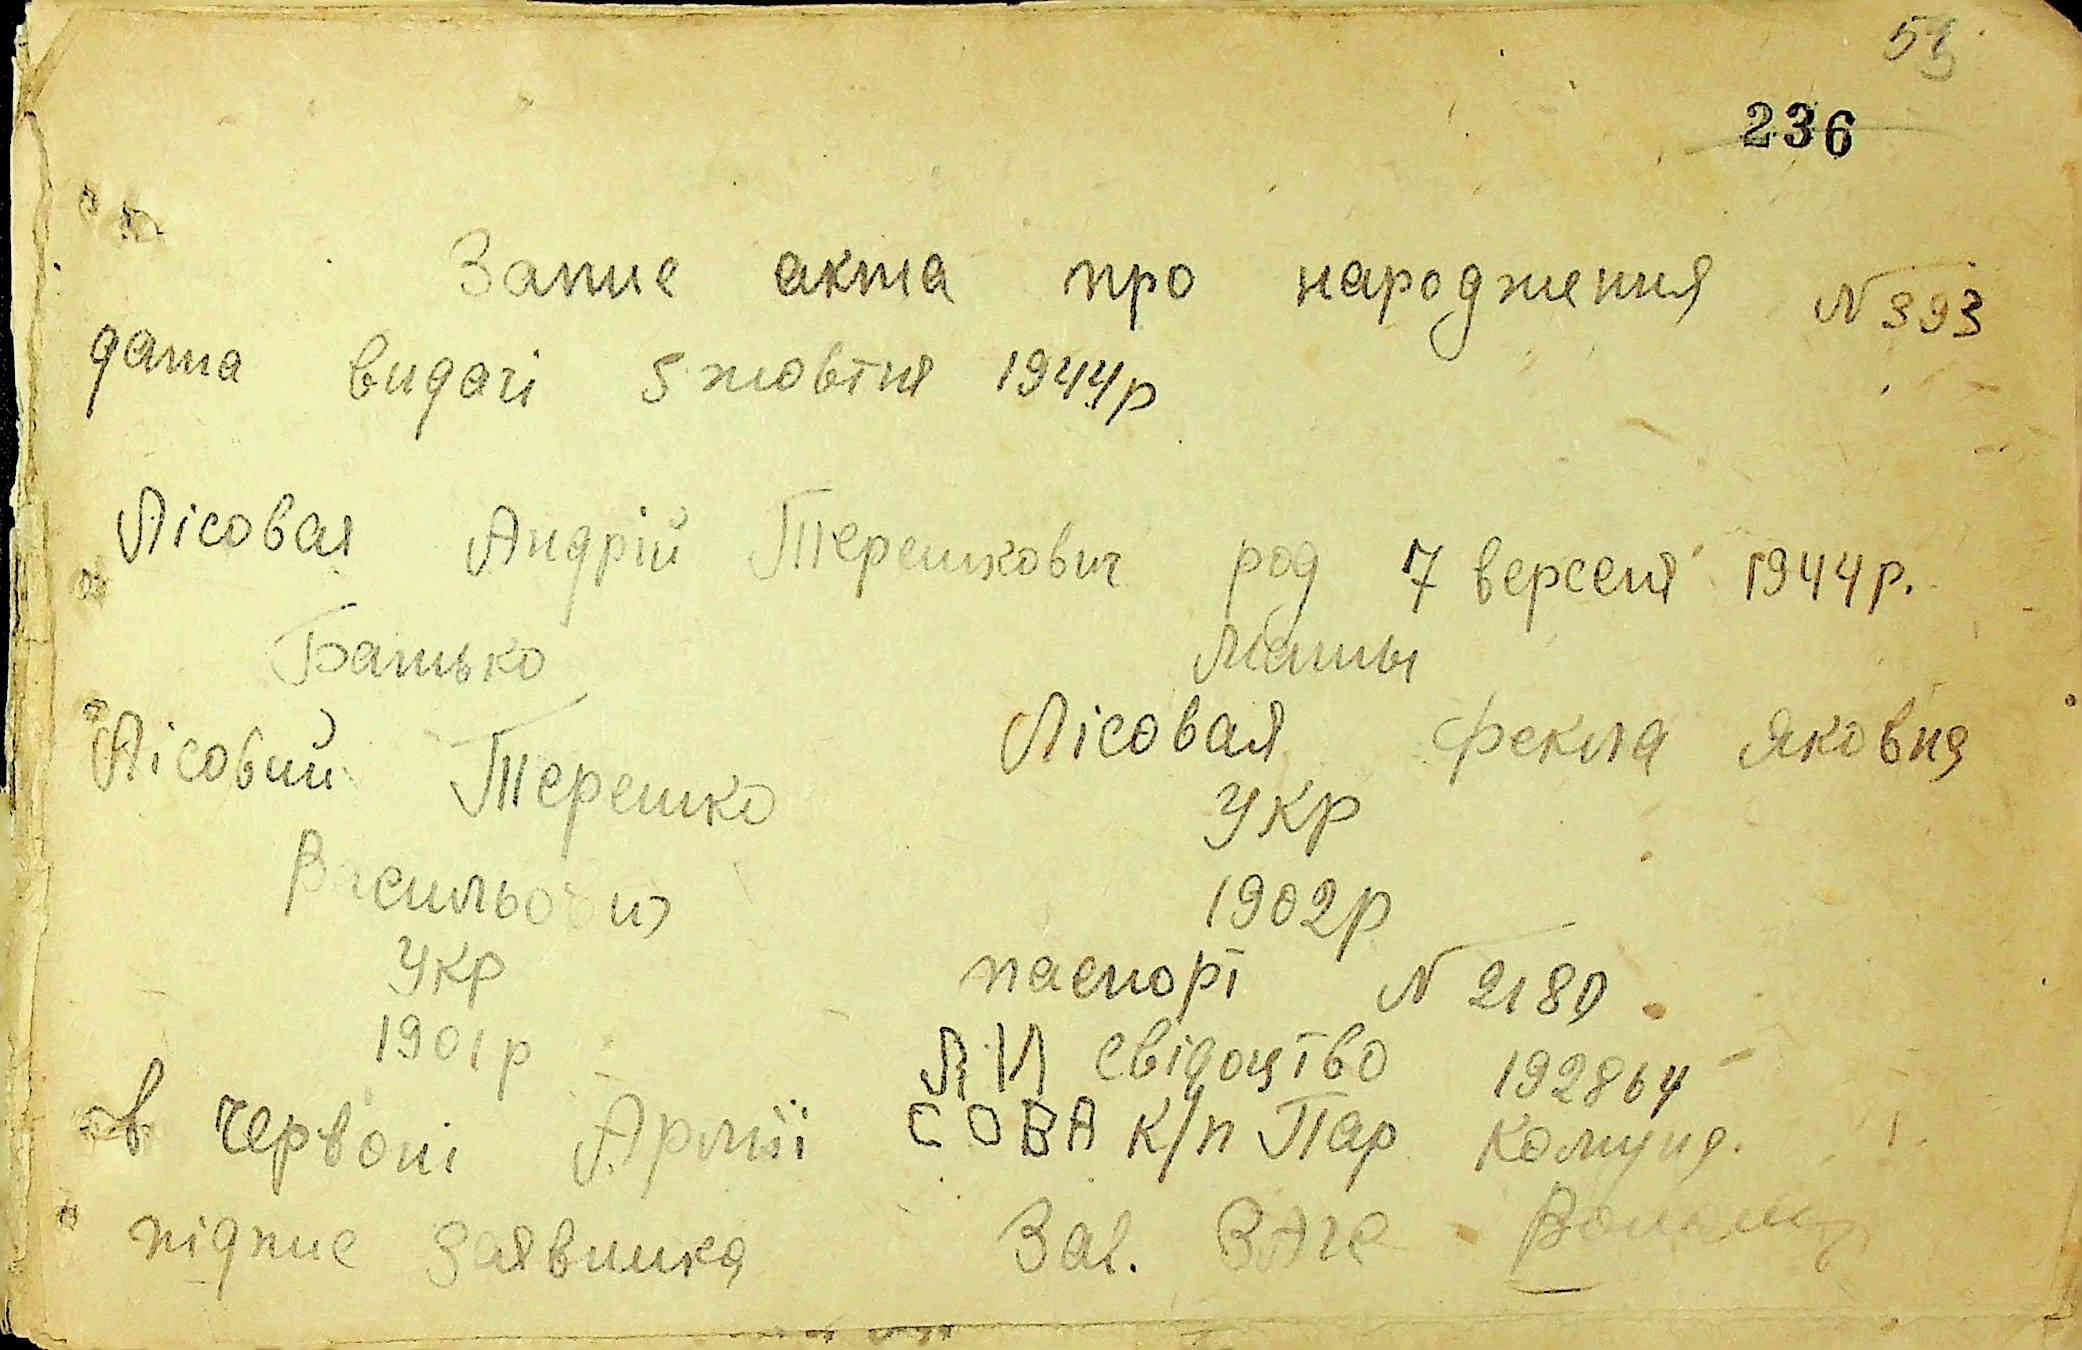 53
236
Запис акта про народження N 393
дата видачі 5 жовтня 1944р
Лісовая Андрій Терешкович род 7 версеня 1944р.
Батько Маты
Лісовий Терешко Лісовая Фекла Яковна
Васильович Укр
Укр 1902р
1901р паспорт N 2180
ЛИ свідоцтво 192864
в червоні Армії СОВА к/п Пар Комуна.
підпис заявника Зав. ЗАГС